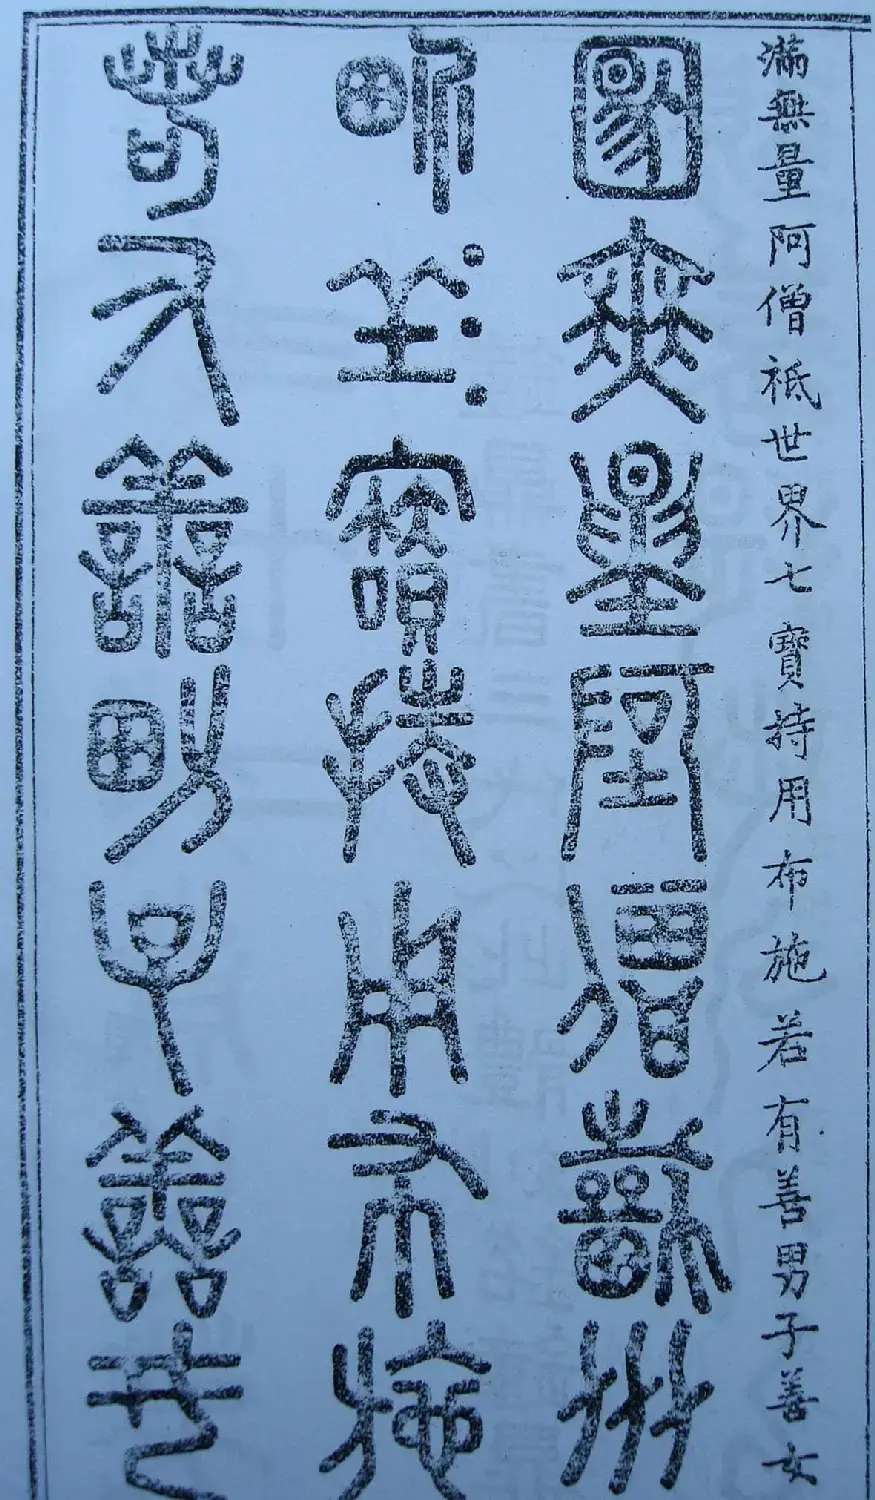 滿無量阿僧祗世界七寶持用布施若有善男子善女
滿無量阿僧祗世
界七寶持用布施
若有善男子善女